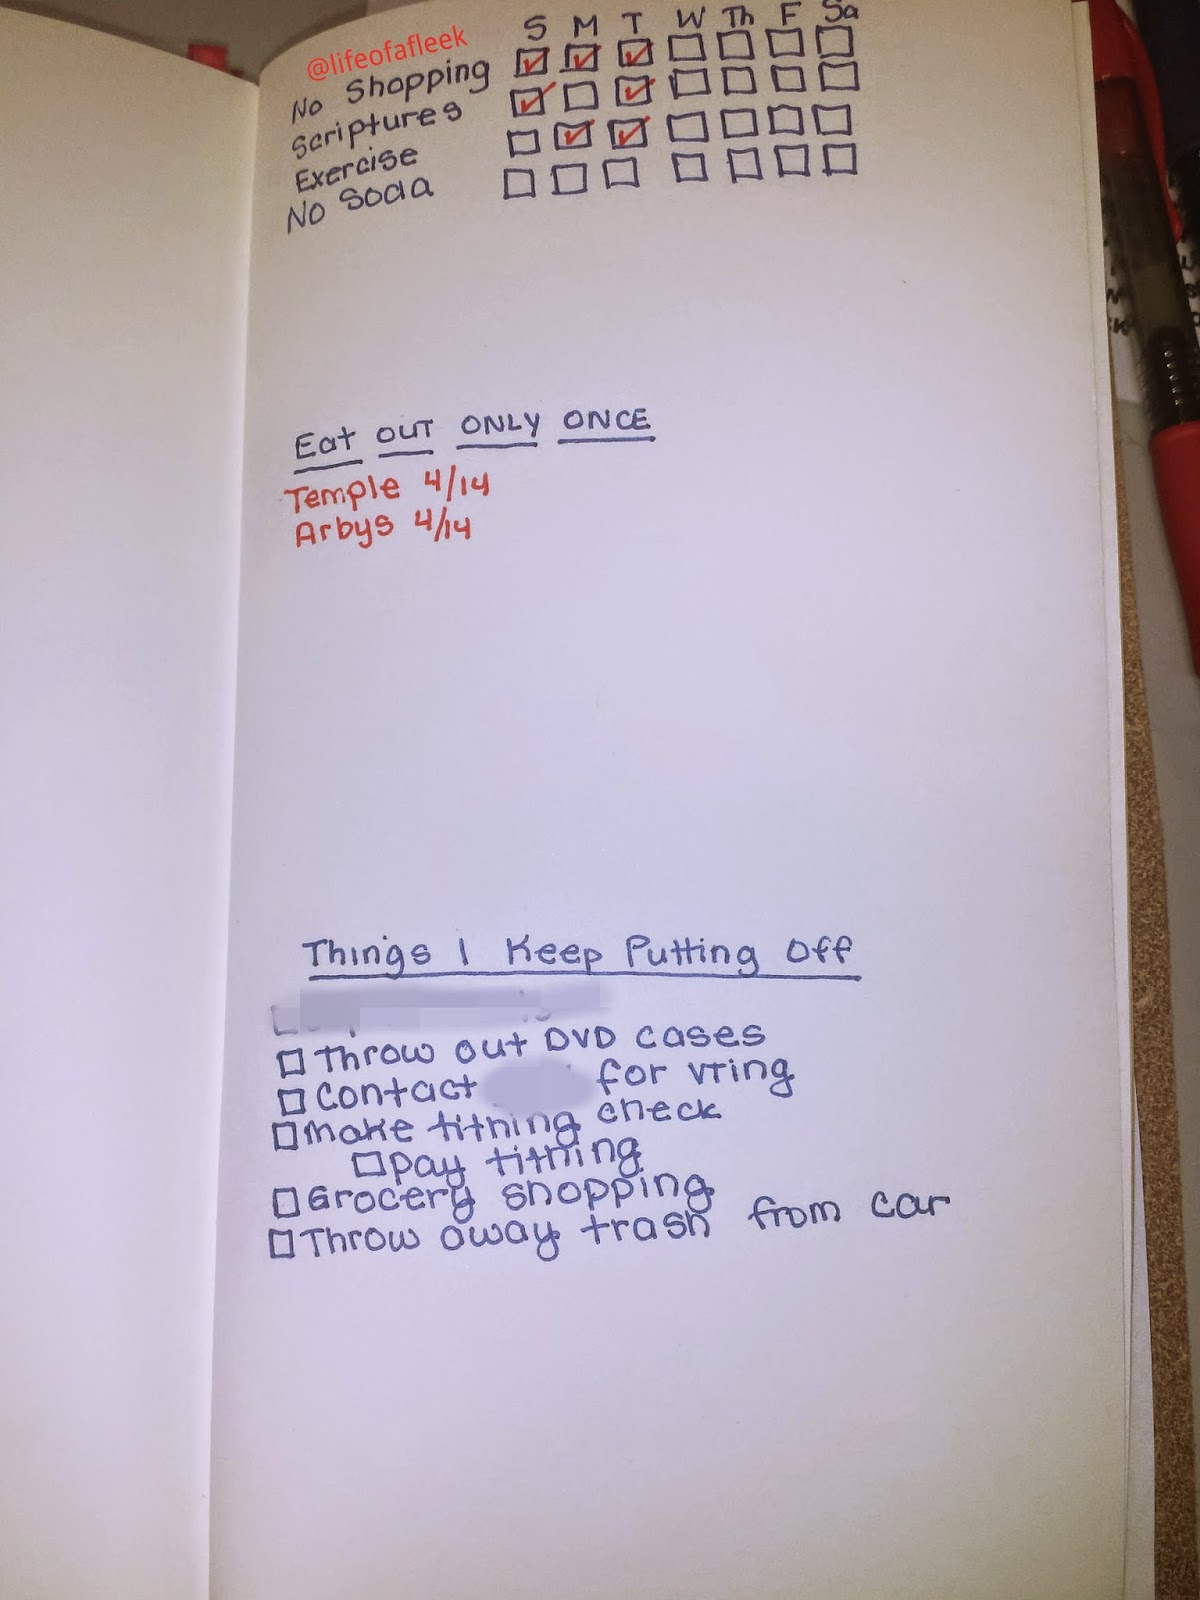 S M T W Th F Sa
@lifeofafleek
No Shopping
Scriptures
Exercise
No Soda
Eat OUT ONLY ONCE
Temple 4/14
Arbys 4/14
Things I Keep Putting Off
Throw out DVD cases
Contact for VTing
Make tithing check
Pay tithing
Grocery shopping
Throw away trash from car